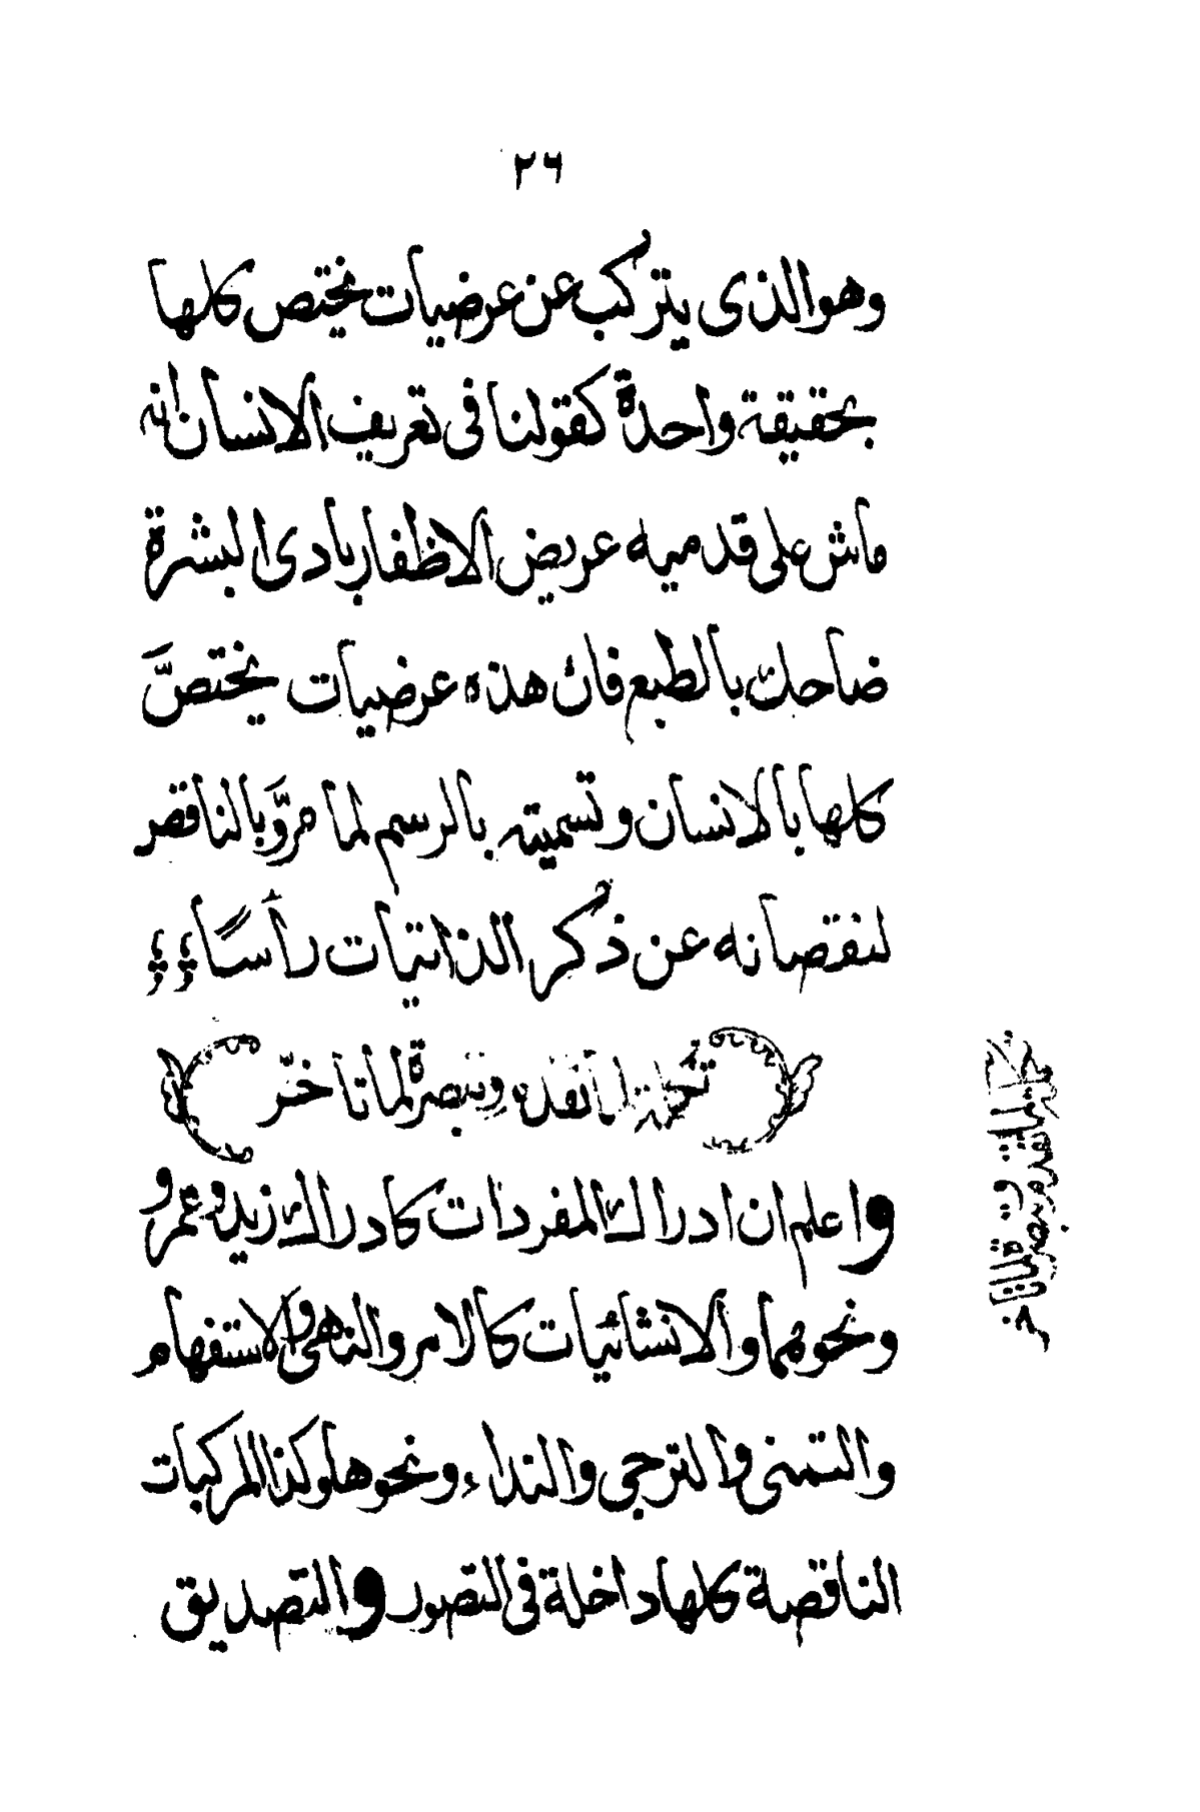 ٢٦
وهو الذى يتركب عن عرضيات يختص كلها
بحقيقة واحدة كقولنا فى تعريف الانسان انه
ماش على قدميه عريض الاظفار بادى البشرة
ضاحك بالطبع فان هذه عرضيات يختصَّ
كلها بالانسان وتسميته بالرسم لما مرَّ وبالناقص
لنقصانه عن ذكر الذاتيات رأسًا
تكملة لما تقدم وتبصرة لما تأخّر
واعلم ان ادراك المفردات كادراك زيد وعمرو
ونحوهما والانشائيات كالامر والنهى والاستفهام
والتمنى والترجى والنداء ونحوها وكذا المركبات
الناقصة كلها داخلة فى التصور والتصديق
تكملة لما تقدم وتبصرة لما تأخر